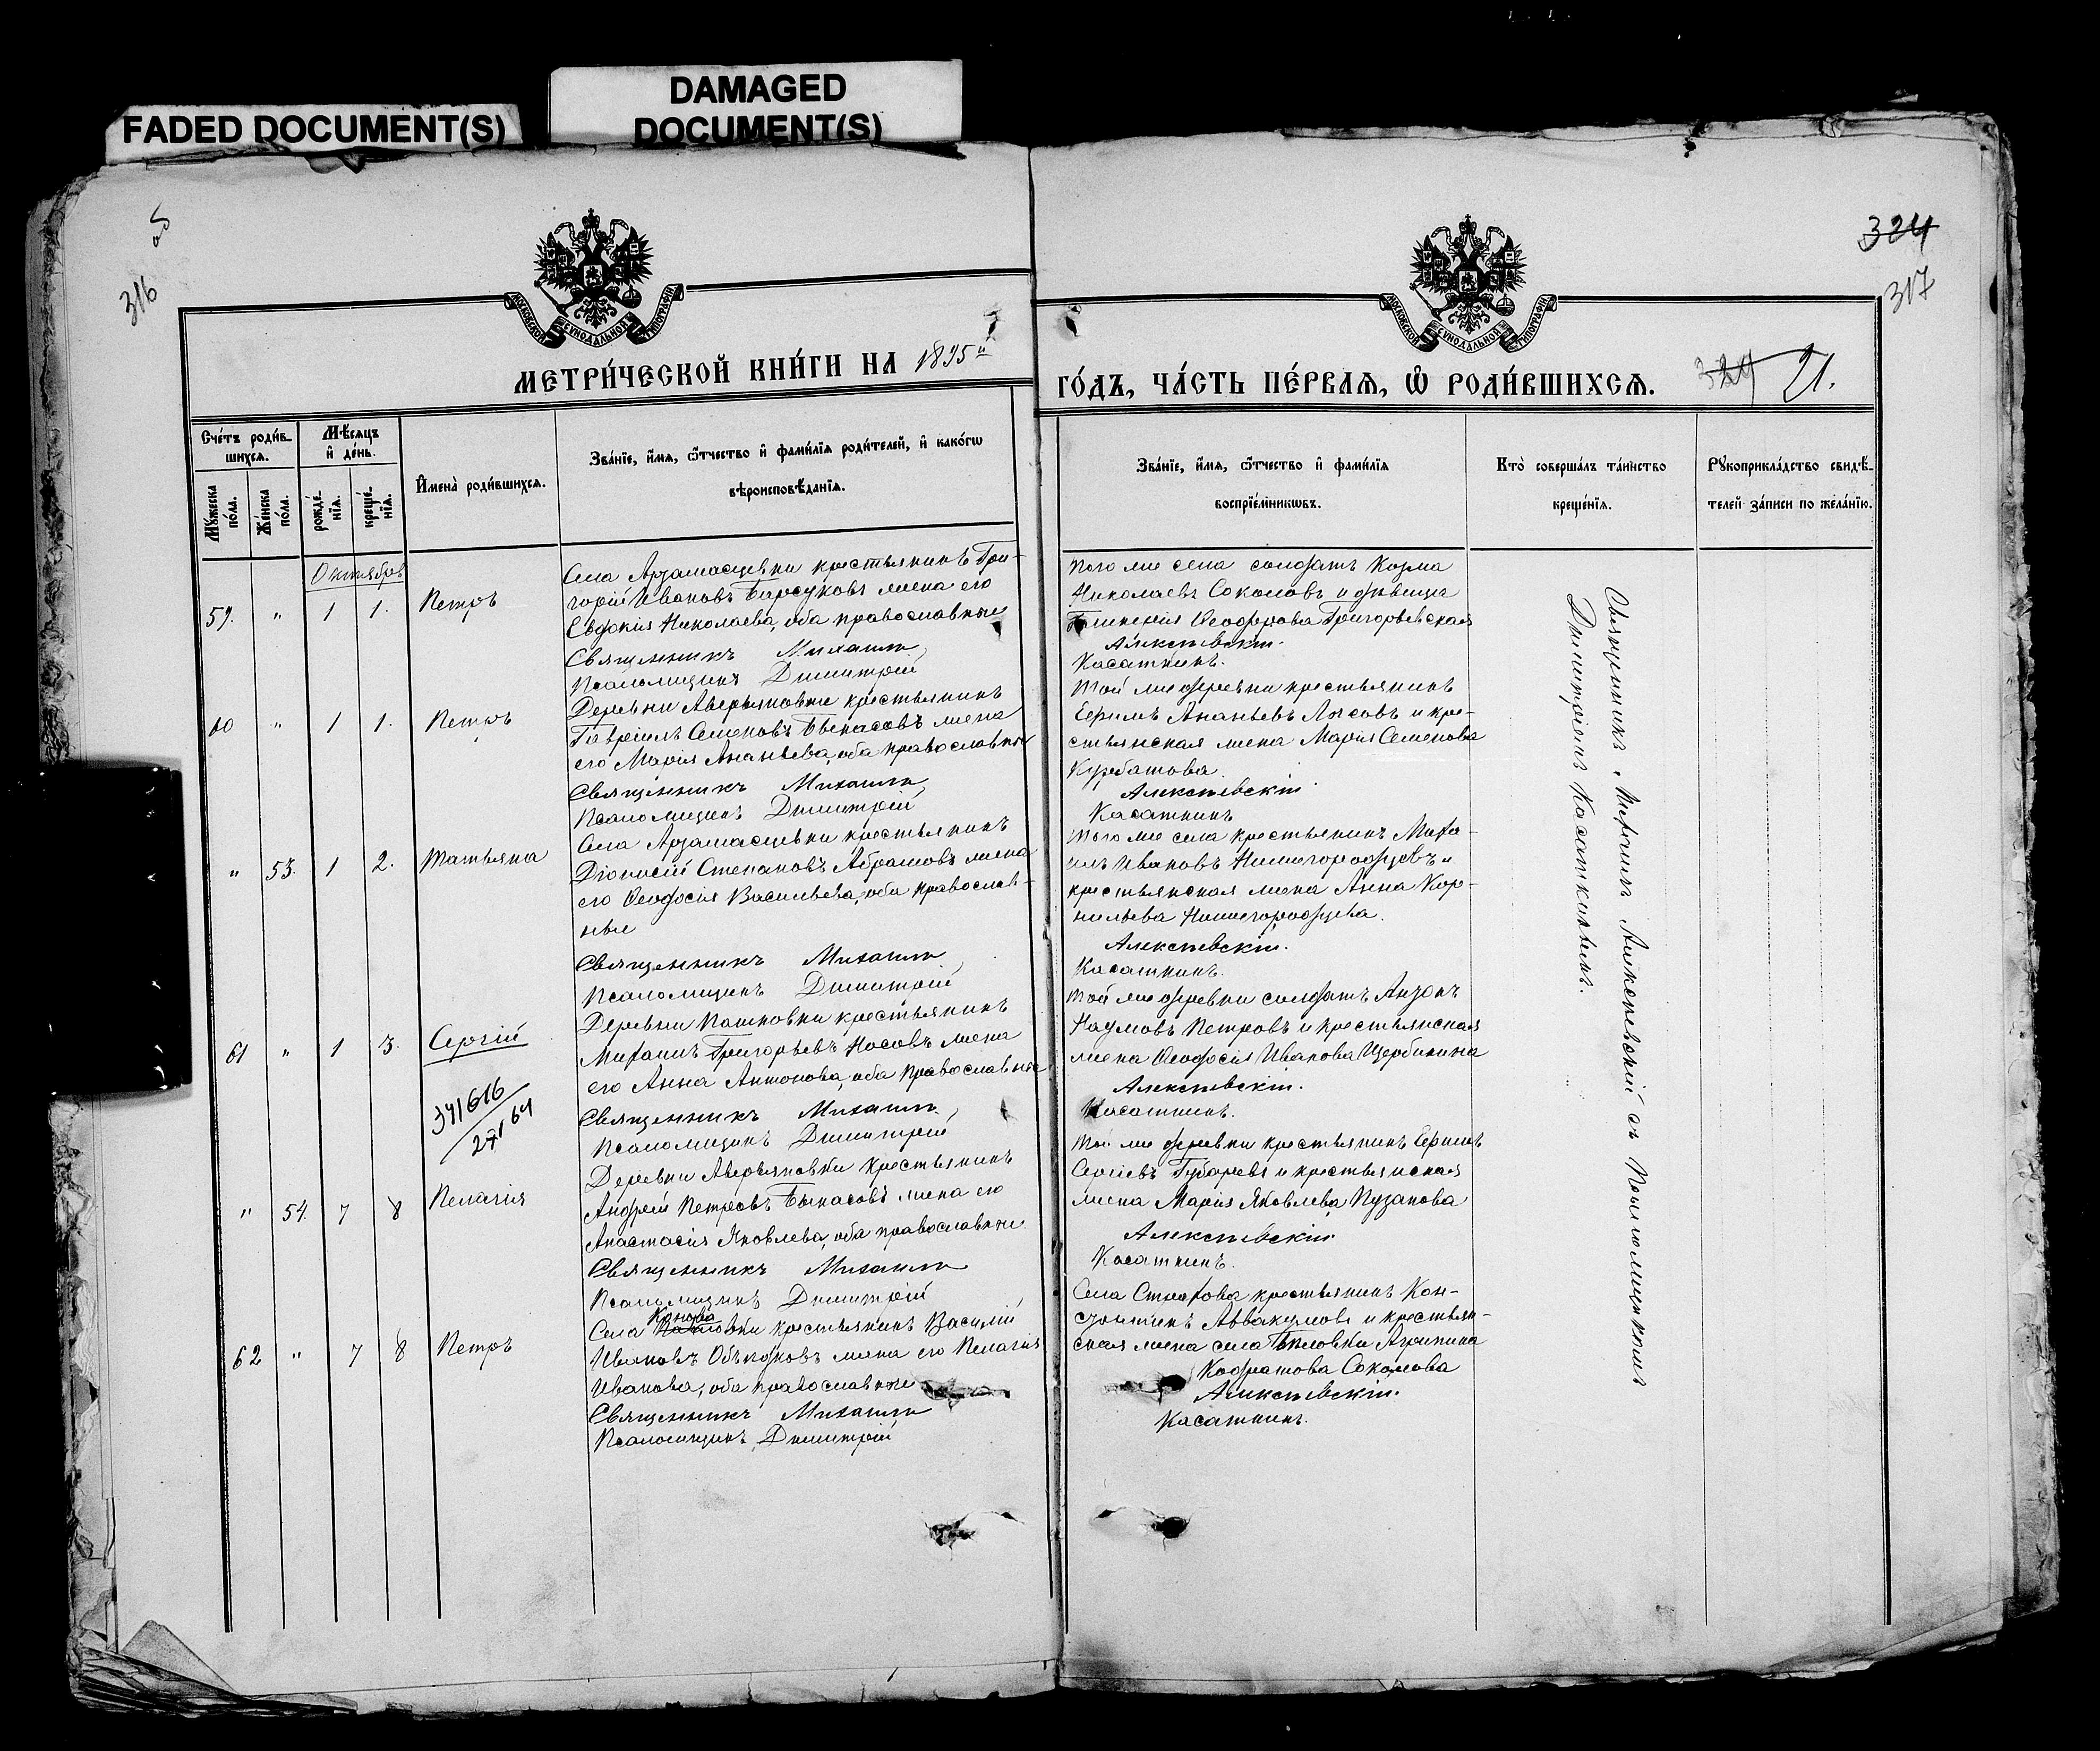 FADED DOCUMENT(S)
DAMAGED
DOCUMENT(S)
об
316
324
317
МОСКОВСКОЙ СѴНОДАЛЬНОЙ ТИПОГРАФІИ
МОСКОВСКОЙ СѴНОДАЛЬНОЙ ТИПОГРАФІИ
МЕТРИ́ЧЕСКОЙ КНИ́ГИ НА 1895й
ГО́ДЪ, ЧА́СТЬ ПЕ́РВАЯ, Ѿ РОДИ́ВШИХСЯ.
324 21.
Сче́тъ роди́в-
шихся.
Мꙋ́жеска по́ла.
Же́нска по́ла.
Мѣ́сяцъ и҆ де́нь.
рожде́-
нїѧ.
креще́-
нїѧ.
И҆мена̀ роди́вшихся.
Зва́нїе, и҆́мя, ѻ҆́тчество и҆ фами́лїя роди́телей, и҆ како́гѡ
вѣроисповѣ́данїя.
Зва́нїе, и҆́мя, ѻ҆́тчество и҆ фами́лїя
воспрїе́мникѡвъ.
Кто̀ соверша́лъ та́инство
креще́нїя.
Рꙋкоприкла́дство свидѣ́-
телей за́писи по жела́нїю.
Октябрь
59. " 1 1. Петръ
Села Арзамасцевки крестьянинъ Гри-
горій Ивановъ Барсуковъ жена его
Евдокія Николаева, оба православные
Священникъ Михаилъ
Псаломщикъ Димитрій
Того же села солдатъ Козма
Николаевъ Соколовъ и девица
Ѳеодорова Григорьевская
Алексѣевскій.
Касаткинъ.
60 " 1 1. Петръ
Деревни Аверьяновки крестьянинъ
Гавріилъ Семеновъ Бекасовъ жена
его Марія Ананьева, оба православные
Священникъ Михаилъ
Псаломщикъ Димитрій
Той же деревни крестьянинъ
Ефимъ Ананьевъ Лысовъ и кре-
стьянская жена Марія Семенова
Курбатова.
Алексѣевскій
Касаткинъ
" 53. 1 2. Татьяна
Села Арзамасцевки крестьянинъ
Діонисій Степановъ Абрамовъ жена
его Ѳеодосія Васильева, оба православ-
ные
Священникъ Михаилъ
Псаломщикъ Димитрій
Того же села крестьянинъ Миха-
илъ Ивановъ Нижегородцевъ и
крестьянская жена Анна Кор-
нильева Нижегородцева.
Алексѣевскій.
Касаткинъ.
61 " 1 3. Сергій
341616
Деревни Пашковки крестьянинъ
Михаилъ Григорьевъ Носовъ жена
его Анна Антонова, оба православные
Священникъ Михаилъ
Псаломщикъ Димитрій
Той же деревни солдатъ
Наумовъ Петровъ и крестьянская
жена Ѳеодосія Иванова Щербинина
Алексѣевскій.
Касаткинъ.
" 54. 7 8 Пелагія
Деревни Аверьяновки крестьянинъ
Андрей Петровъ Бекасовъ жена его
Анастасія Яковлева, оба православные
Священникъ Михаилъ
Псаломщикъ Димитрій
Той же деревни крестьянинъ Ефимъ
Сергіевъ Губаревъ и крестьянская
жена Марія Яковлева Пузанова
Алексѣевскій
Касаткинъ.
62 " 7 8 Петръ
Села крестьянинъ Василій
Ивановъ жена его Пелагія
Иванова, оба православные
Священникъ Михаилъ
Псаломщикъ Димитрій
Села Страхова крестьянинъ Кон-
Аввакумовъ и крестьян-
ская жена села Агрипина
Кодратова Соколова
Алексѣевскій.
Касаткинъ.
Священникъ Михаилъ Алексѣевскій съ Псаломщикомъ
Димитріемъ Касаткинымъ.